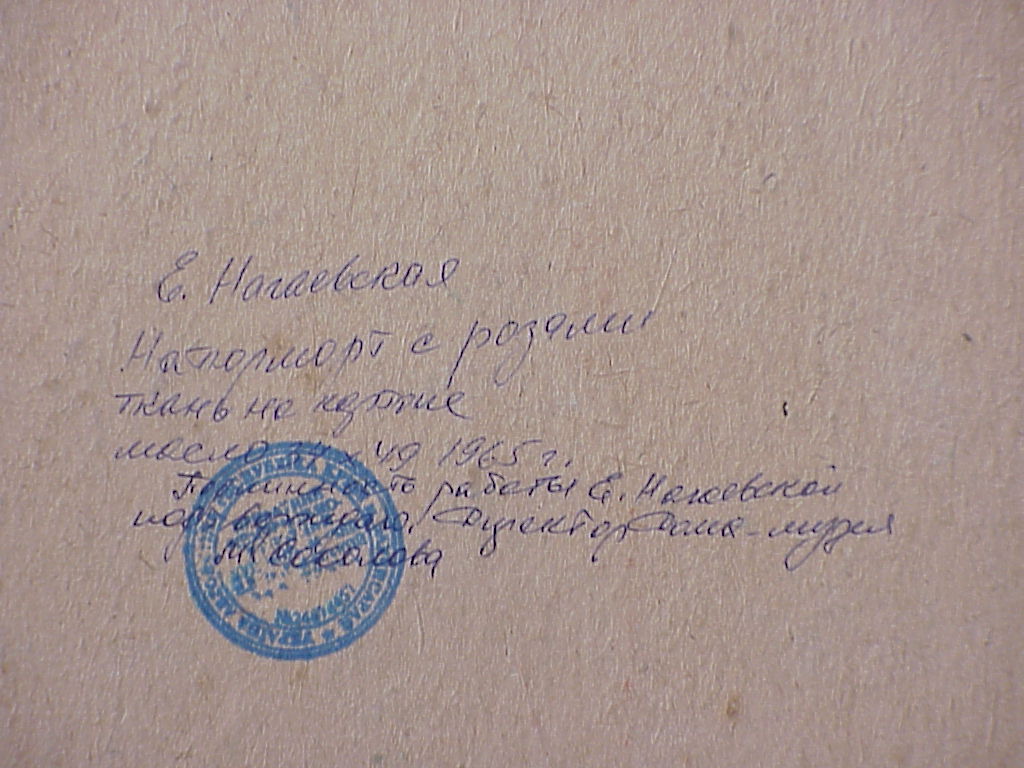 Е. Нагаевская
Натюрморт с розами
ткань на картоне
масло 34 х 49 1965 г.
Подлинность работы Е. Нагаевской
подтверждаю. Директор Дома-музея
М. Соколова